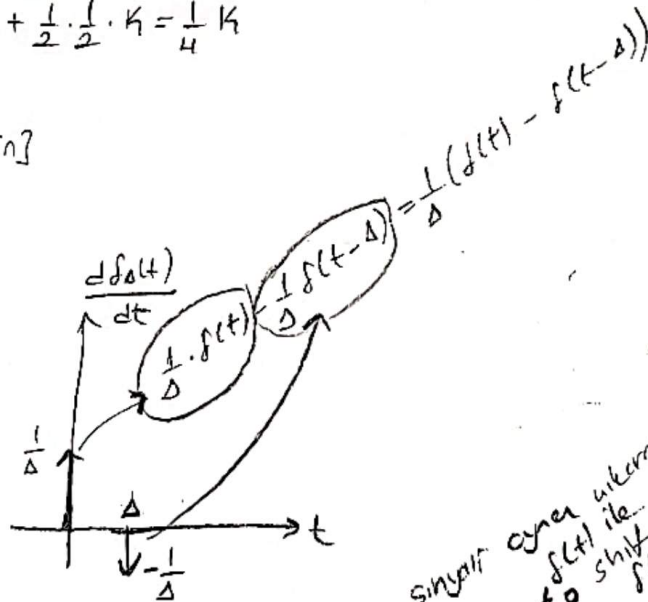 + 1/2 · 1/2 · K = 1/4 K
n]
dδΔ(t)/dt
1/Δ · δ(t) - 1/Δ δ(t-Δ) = 1/Δ (δ(t) - δ(t-Δ))
1/Δ
Δ
t
-1/Δ
sinyali aynen
δ(t) ile
to shift
δ